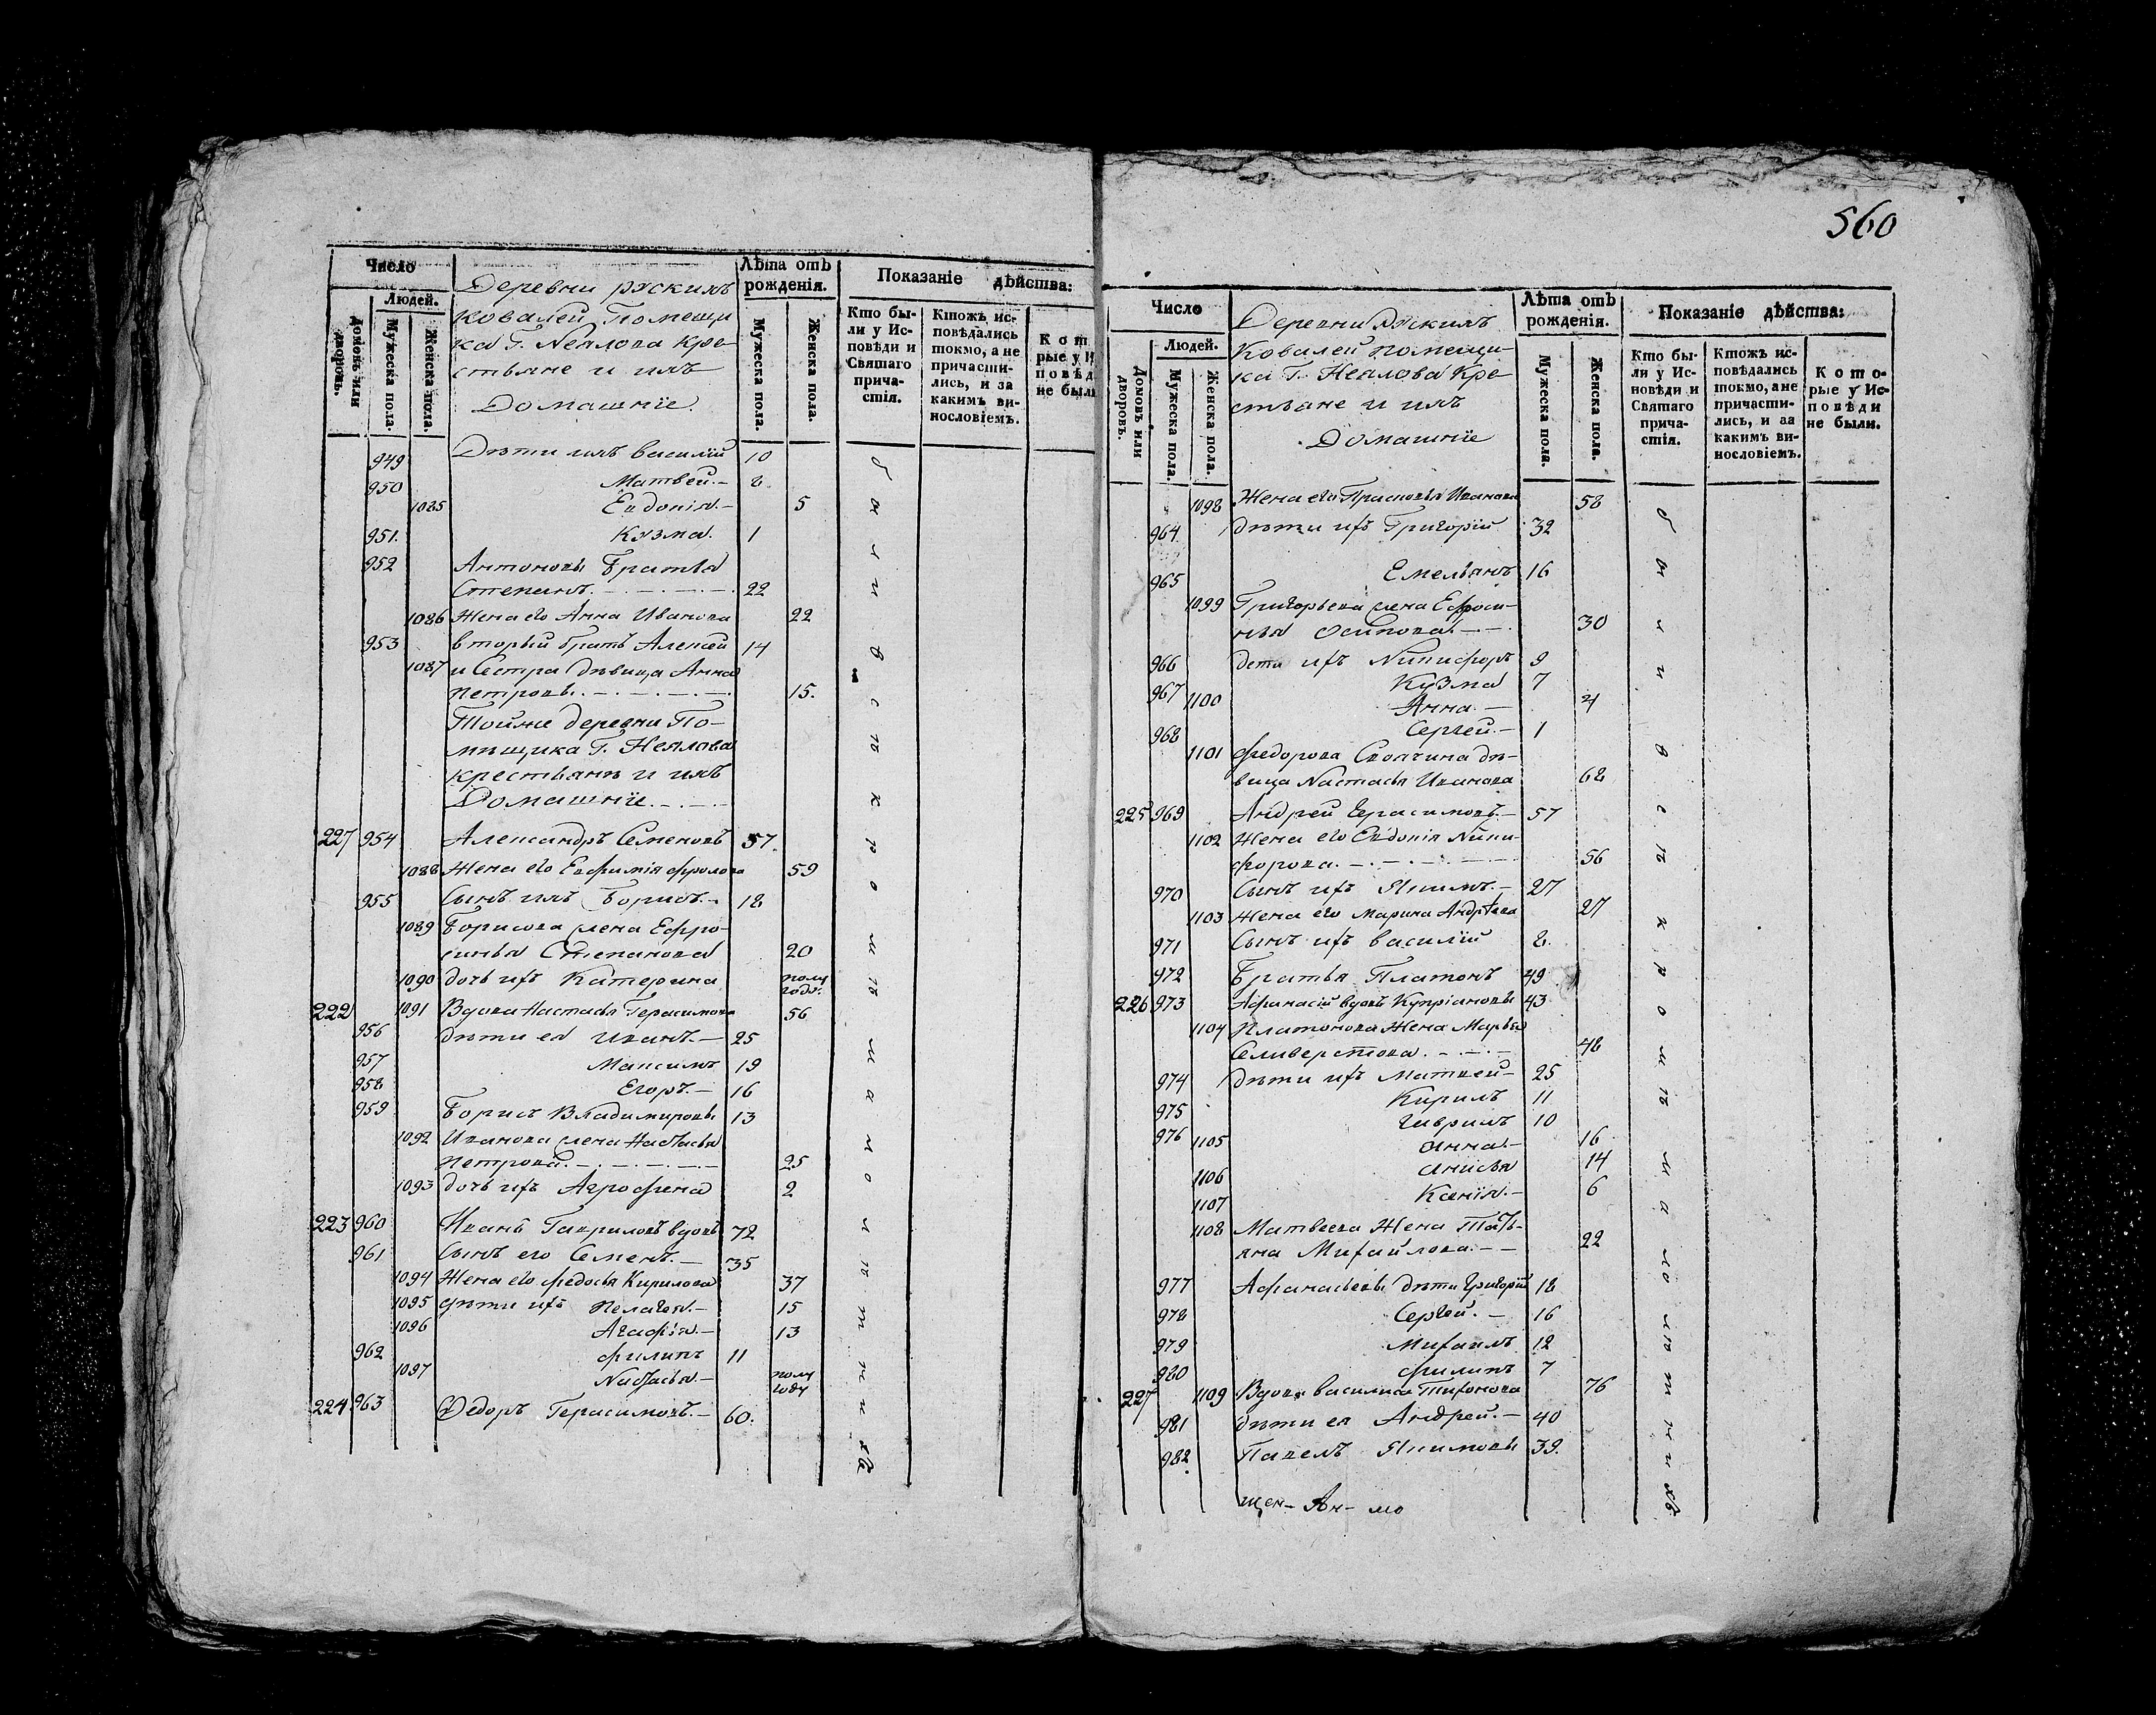 Число
Людей.
Домовъ или дворовъ.
Мужеска пола.
Женска пола.
Деревни рускихъ
Ковалей Помещи
ка Г. Неялова кре-
стьяне и ихъ
Домашніе.
Лѣта отъ рожденія.
Мужеска пола.
Женска пола.
Показаніе дѣйства:
Кто бы-
ли у Ис-
повѣди и
Святаго
прича-
стія.
Ктожъ ис-
повѣдались
токмо, а не
причасти-
лись, и за
какимъ ви-
нословіемъ.
Кот
рые у И
повѣд
не был
949 Дѣти ихъ Василій 10
950 Матвей.– 8
1085 Евдокія.– 5
951. Кузма. 1
952 Антоновы братья
Степанъ. 22
1086 Жена его Анна Иванова 22
953 вторый братъ Алексей 14
1087 и Сестра дѣвица Анна
Петровы. 15.
Тойже деревни По-
мѣщика Г. Неялова
крестьянѣ и ихъ
Домашніе.
221 954 Александръ Семеновъ 57.
1088 Жена его Евфимія Фролова 59
955 Сынъ ихъ Борисъ.– 18
1089 Борисова жена Ефро-
синья Степанова 20
1090 дочь ихъ Катерина полу
года.
222 1091 Вдова Настасья Герасимова 56
956 дѣти ея Иванъ.– 25
957 Максимъ 19
958 Егоръ.– 16
959 Борисъ Владимировы 13
1092 Иванова жена Настасья
Петрова. 25
1093 дочь ихъ Агрофена 2
223 960 Иванъ Гавриловъ вдовъ 72
961 Сынъ его Семенъ.– 35
1094 Жена его Федосья Кирилова 37
1095 дѣти ихъ Пелагея.– 15
1096 Агафія.– 13
962 Филипъ 11
1097 Настасья.– полу
году
224 963 Федоръ Герасимовъ.– 60.
были въ св. кромѣ малолѣтнихъ
560
Число
Людей.
Домовъ или дворовъ.
Мужеска пола.
Женска пола.
Деревни Рускихъ
Ковалей помещи-
ка Г. Неялова Кре
стьяне и ихъ
Домашніе
Лѣта отъ рожденія.
Мужеска пола.
Женска пола.
Показаніе дѣйства:
Кто бы-
ли у Ис-
повѣди и
Святаго
прича-
стія.
Ктожъ ис-
повѣдались
токмо, а не
причасти-
лись, и за
какимъ ви-
нословіемъ.
Кото-
рые у Ис-
повѣди
не были.
1098 Жена его Прасковья Иванова 58
964. дѣти ихъ Григорій 32
965 Емельянъ 16
1099 Григорьева жена Ефроси-
нья Осипова.– 30
966 дети ихъ Никифоръ 9
967 Кузма 7
1100 Анна.– 4
968 Сергей.– 1
1101 Федорова Своячина дѣ-
вица Настасья Иванова 68
225 969 Андрей Герасимовъ.– 57
1102 Жена его Евдокія Ники-
форова. 56
970 Сынъ ихъ Якимъ.– 27
1103 Жена его Марина Андрѣева 27
971 Сынъ ихъ Василій 8.
972 Братья Платонъ 49
226 973 Афанасій вдовъ Купріановы 43
1104 Платонова Жена Марья
Селиверстова. 48
974 дѣти ихъ Матвей– 25
975 Кирилъ 11
976 Гаврилъ 10
1105 Анна.– 16
1106 Анисья 14
1107 Ксенія.– 6
1108 Матвеева Жена Тать-
яна Михайлова.– 22
977 Афанасьевы дѣти Григорій 18
978 Сергей.– 16
979 Михаилъ 12
980 Филипъ 7
227 1109 Вдова Василиса Тихонова 76
981 дѣти ея Андрей.– 40
982 Павелъ Якимовы 39.